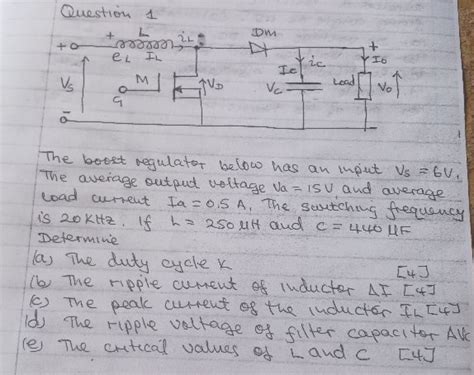 Question 1
+ L iL Dm
+o eL IL Ic ic + Io
Vs M VD Vc Load Vo
G
-
The boost regulator below has an input Vs = 6V,
The average output voltage Va = 15V and average
Load current Ia = 0.5 A, The switching frequency
is 20KHz. If L = 250 μH and C = 440 μF
Determine
(a) The duty cycle K [4]
(b) The ripple current of inductor ΔI [4]
(c) The peak current of the inductor IL [4]
(d) The ripple voltage of filter capacitor ΔVc
(e) The critical values of L and C [4]